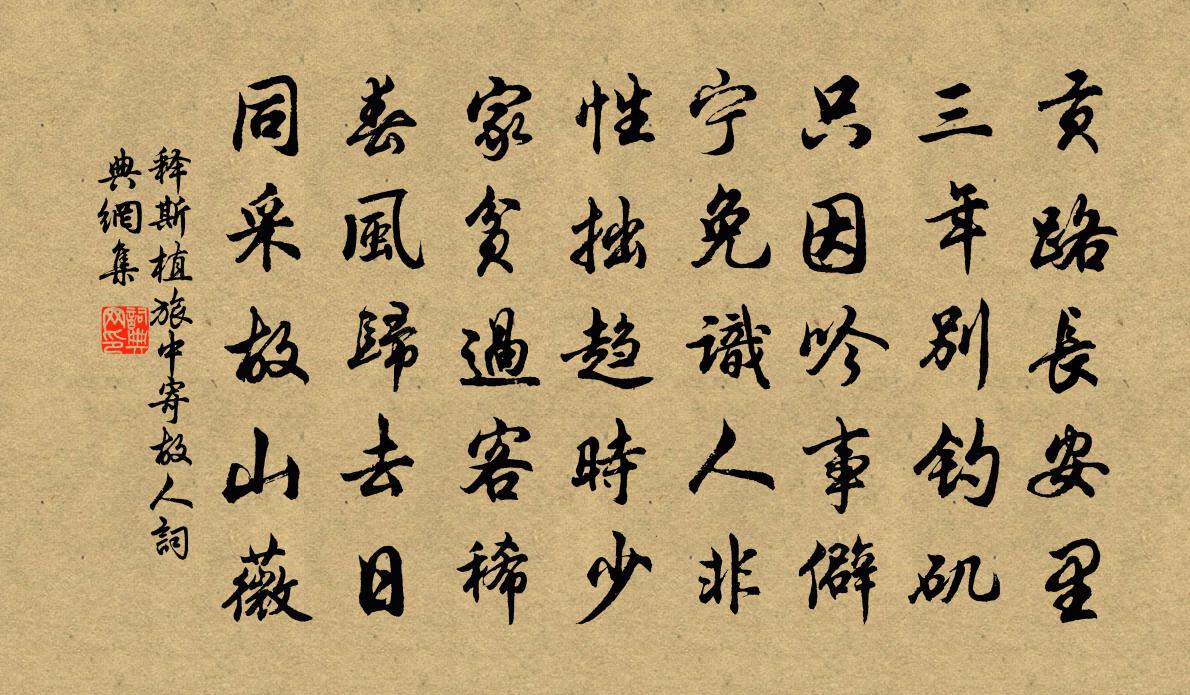 贡路長安里
三年别钓矶
只因吟事僻
宁免識人非
性拙趋時少
家貧過客稀
春風歸去日
同采故山薇
释斯植旅中寄故人詞
典網集
詞典
网印